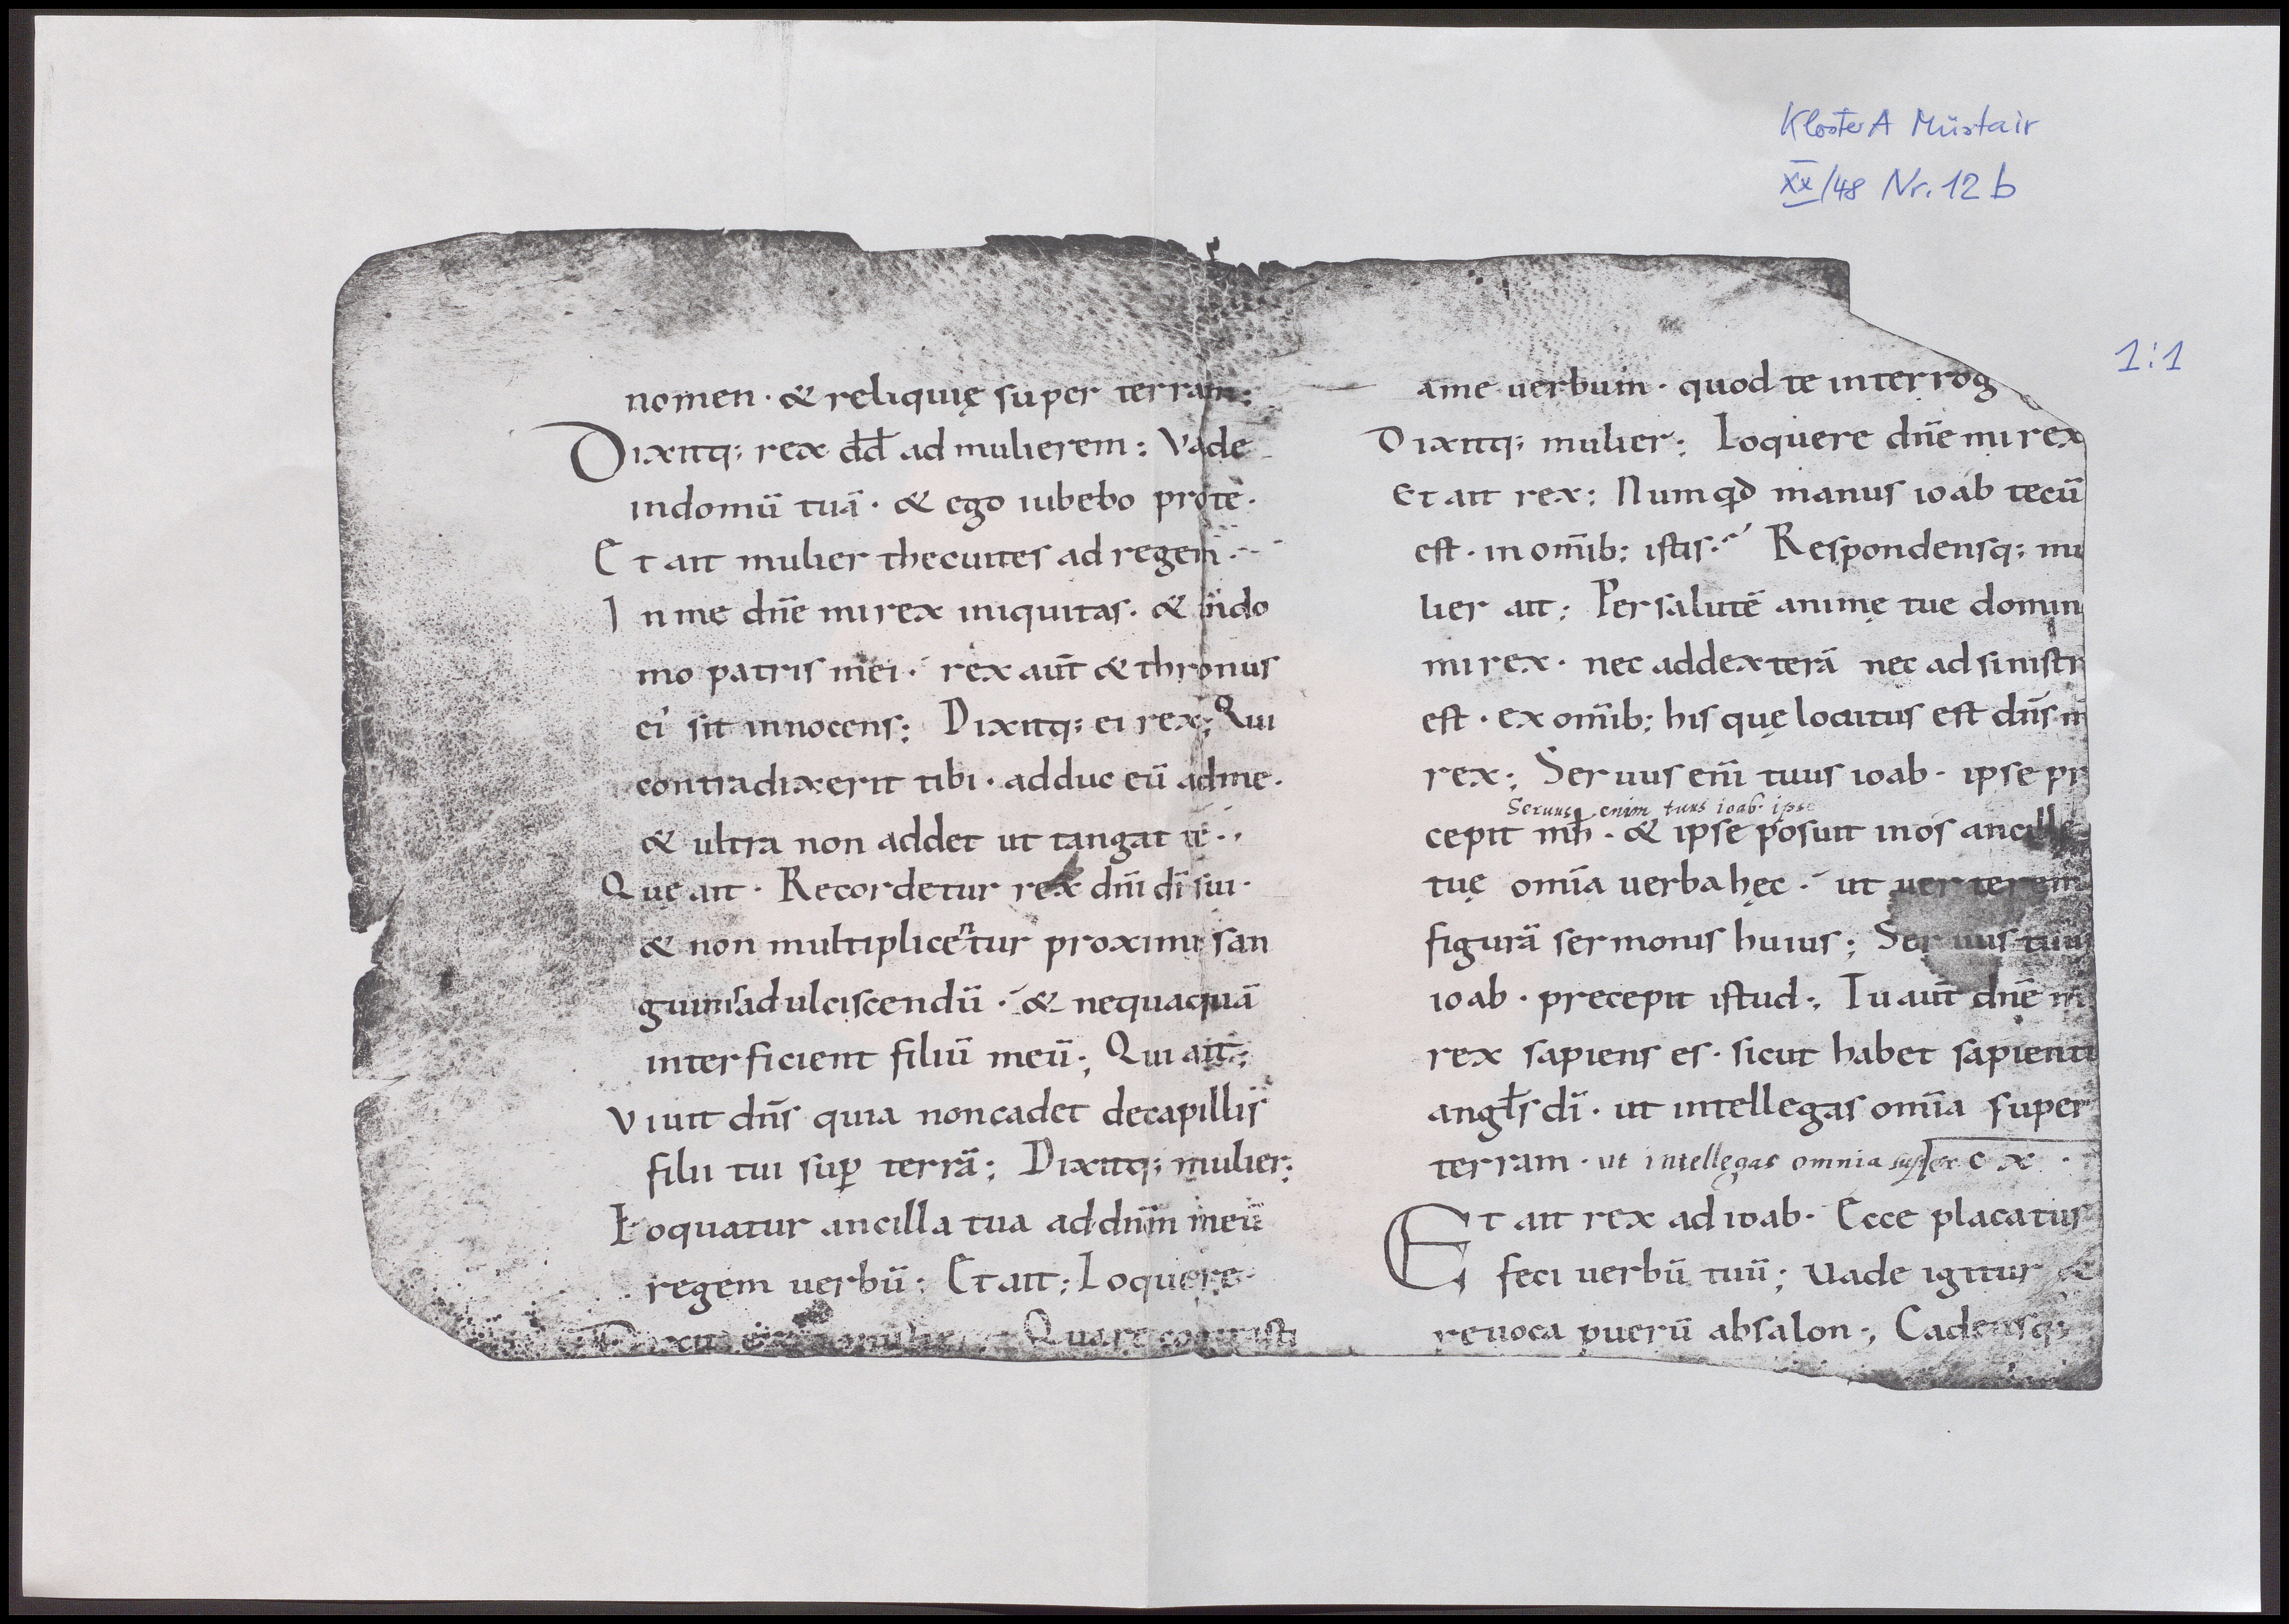 KlosterA Müstair
XX/48 Nr. 12 b
1:1
nomen · & reliquię super terram;
Dixitq; rex dd̄ ad mulierem: Vade
indomū tuā · & ego iubebo prote·
Et ait mulier thecuites ad regem·
In me dn̄e mi rex iniquitas· & indo
mo patris mei· rex aut̄ & thronus
ei' sit innocens; Dixitq; ei rex; Qui
contradixerit tibi · adduc eū adme·
& ultra non addet ut tangat te·,
Quę ait · Recordetur rex dn̄i dī sui·
& non multiplicentur proximi san
guinis ad ulciscendū · & nequaquā
interficient filiū meū; Qui ait;
Viuit dn̄s quia noncadet decapillis
filii tui suꝑ terrā; Dixitq; mulier;
Loquatur ancilla tua addn̄m meū
regem uerbū: Et ait; Loquere·
Dixit Quare cogitasti
ame uerbum · quod te interrog
Dixitq; mulier; Loquere dn̄e mi rex
Et ait rex: Numqd̄ manus ioab tecū
est · in om̄ib; istis· Respondensq; mu
lier ait; Persalutē animę tue domin
mi rex · nec addexterā nec ad sinistr
est · ex om̄ib; his quę locutus est dn̄s m
rex; Seruus enī tuus ioab · ipse pr
Seruus enim tuus ioab· ipse
cepit mh̄ · & ipse posuit inos ancille
tuę om̄ia uerba hęc · ut uerterem
figurā sermonis huius; Seruus tuus
ioab · precepit istud·, Tu aut̄ dn̄e m
rex sapiens es · sicut habet sapienti
angl̄s dī · ut intellegas om̄ia super
terram · ut intellegas omnia super c x ·
Et ait rex ad ioab· Ecce placatus
feci uerbū tuū; Vade igitur &
reuoca puerū absalon·, Cadensq;